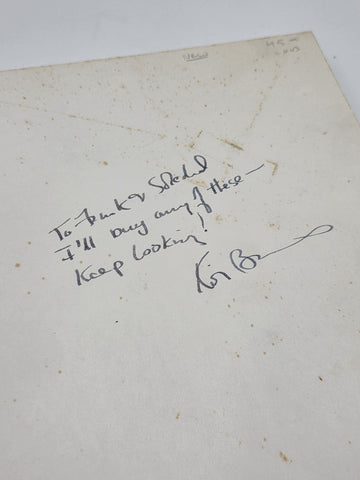 NEW
To Frank & Soledad
I'll buy any of these —
Keep looking!